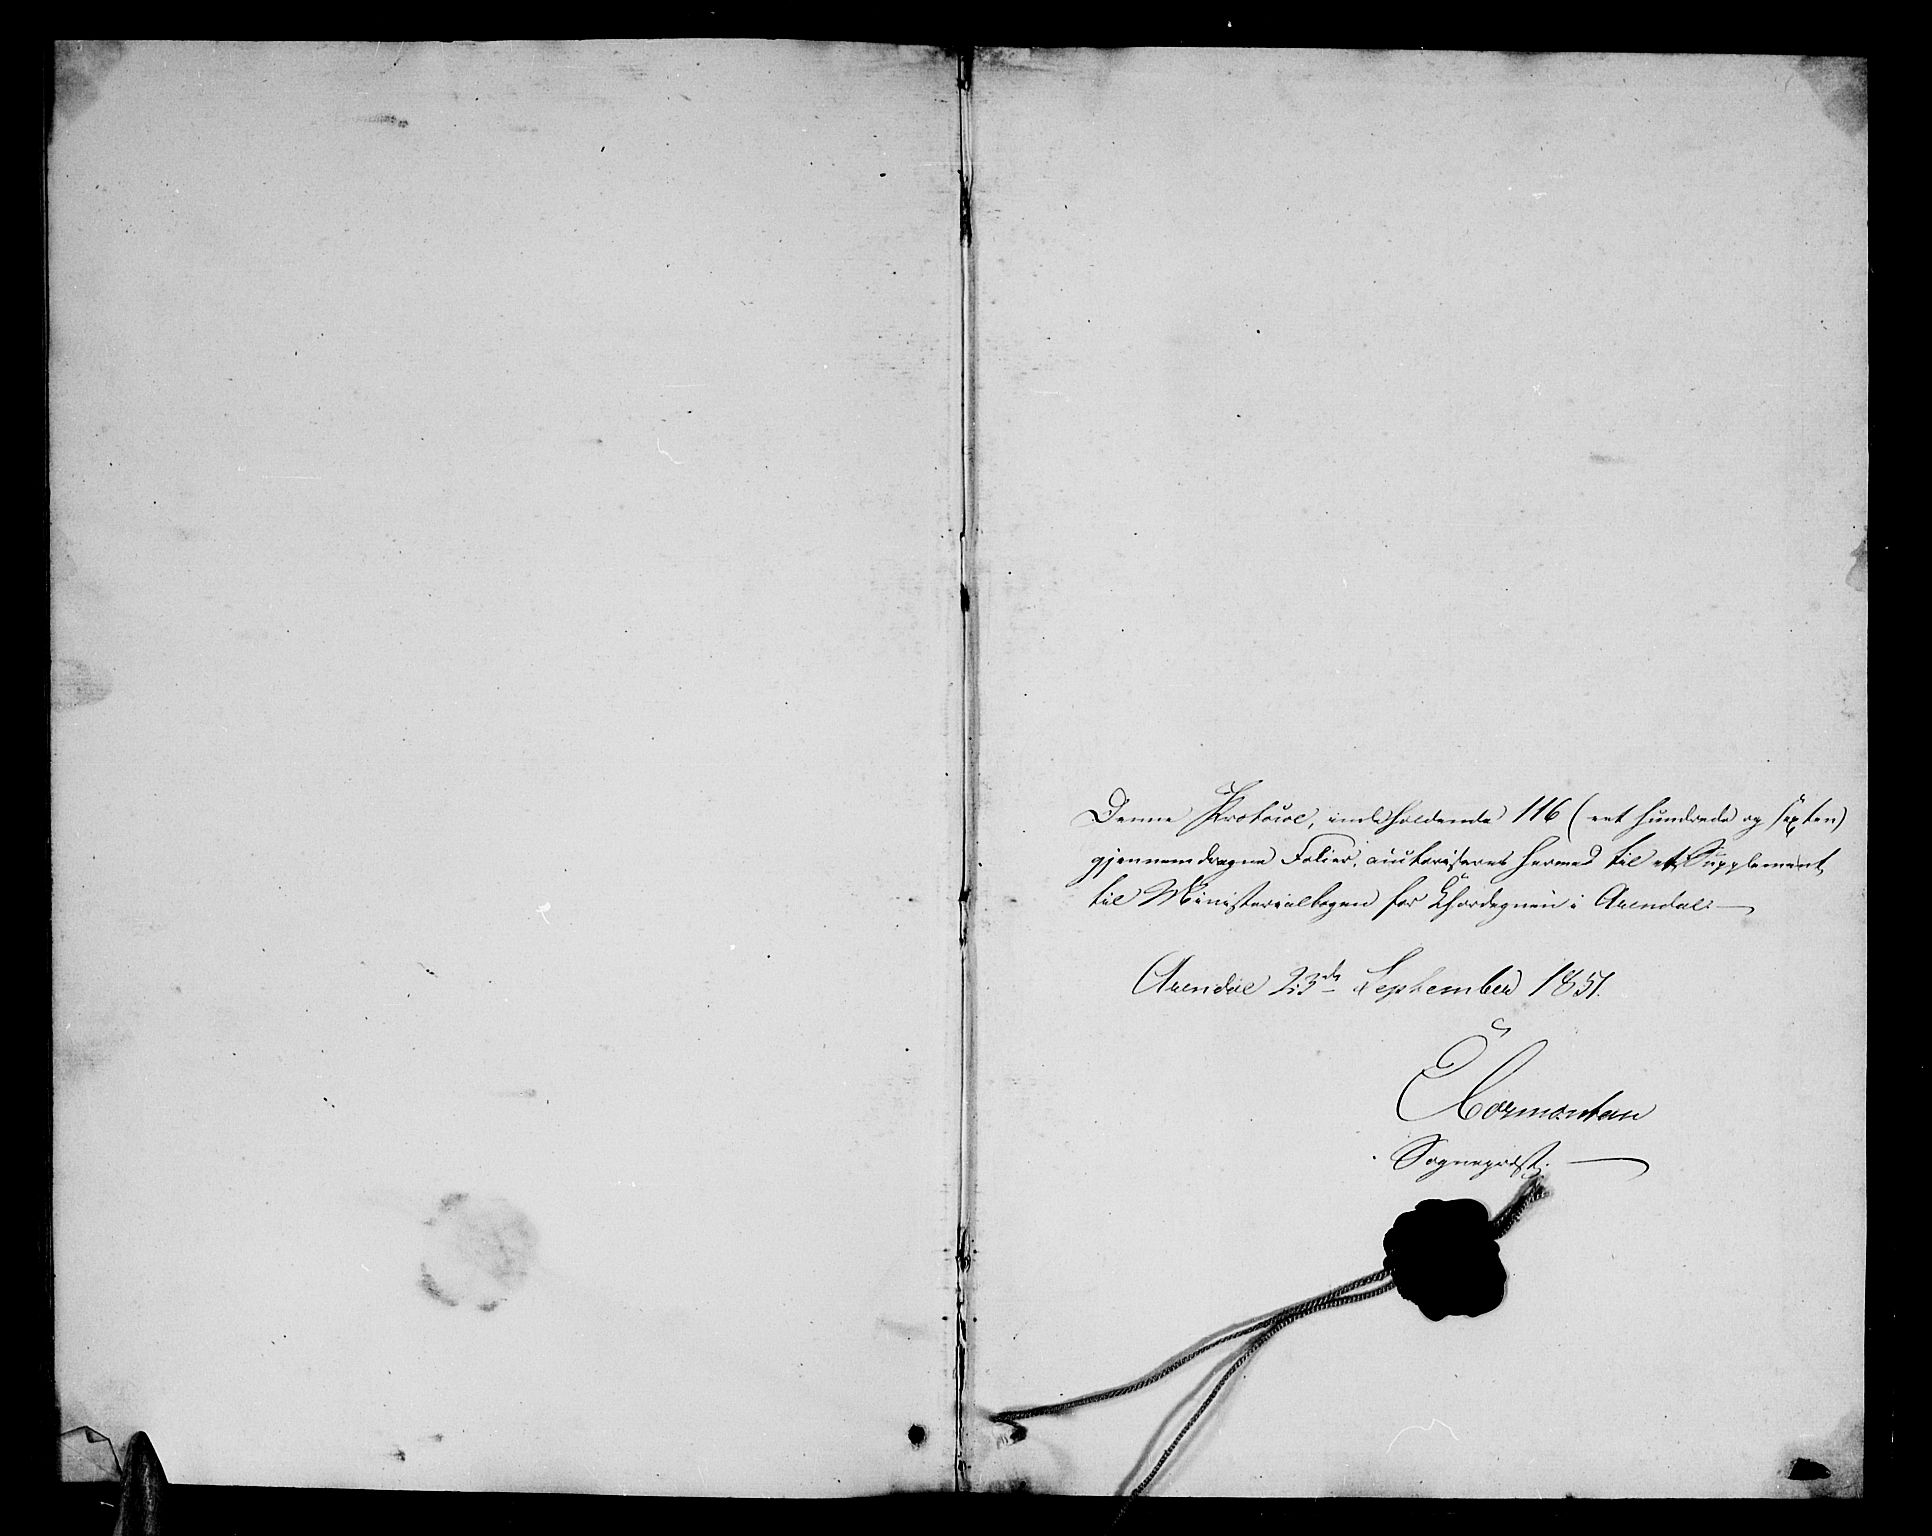 Denne Protocol, indeholdende 116 (eet hundrede og sexten)
gjennemdragne Folier, authoriseres hermed til et Supplement
til Ministerialbogen for Chordegnen i Arendal.
Arendal 23de September 1851.
Hormontan
Sognepræst.